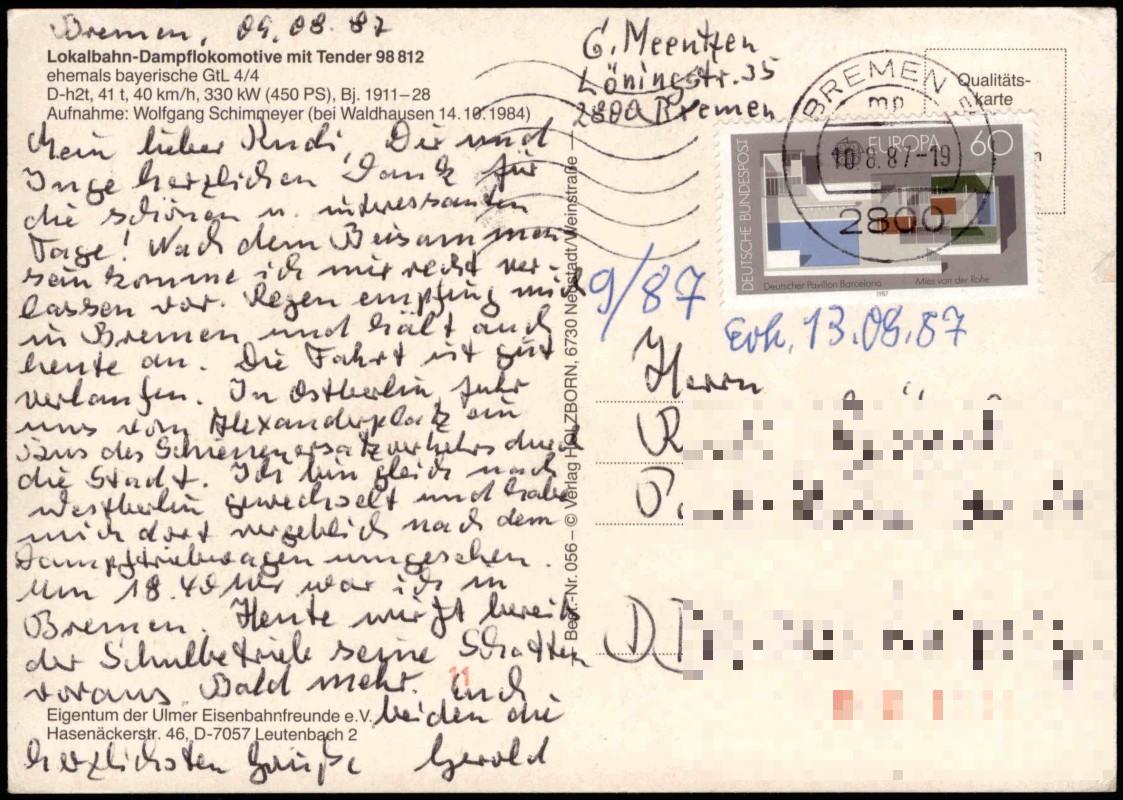 Bremen, 09.08.87
Lokalbahn-Dampflokomotive mit Tender 98 812
ehemals bayerische GtL 4/4
D-h2t, 41 t, 40 km/h, 330 kW (450 PS), Bj. 1911–28
Aufnahme: Wolfgang Schimmeyer (bei Waldhausen 14.10.1984)
Mein lieber Rudi, Dir und
Inge herzlichen Dank für
die schönen u. interessanten
Tage! Nach dem Beisammen
sein komme ich mir recht ver-
lassen vor. Regen empfing mich
in Bremen und hält auch
heute an. Die Fahrt ist gut
verlaufen. In Ostberlin fuhr
uns vom Alexanderplatz ein
Bus des Schienenersatzverkehrs durch
die Stadt. Ich bin gleich nach
Westberlin gewechselt und habe
mich dort vergeblich nach dem
Dampftriebwagen umgesehen.
Um 18.40 Uhr war ich in
Bremen. Heute wirft bereits
der Schulbetrieb seine Schatten
voraus. Bald mehr. Euch
beiden die
herzlichsten Grüße Gerold
11
Eigentum der Ulmer Eisenbahnfreunde e.V.
Hasenäckerstr. 46, D-7057 Leutenbach 2
Best.-Nr. 056 – © Verlag HOLZBORN, 6730 Neustadt/Weinstraße
G. Meentzen
Löningstr. 35
2800 Bremen
Qualitäts-
karte
BREMEN
mp
10.8.87-19
2800
DEUTSCHE BUNDESPOST
EUROPA 60
Deutscher Pavillon Barcelona Mies van der Rohe
1987
9/87
Erh. 13.08.87
Herrn